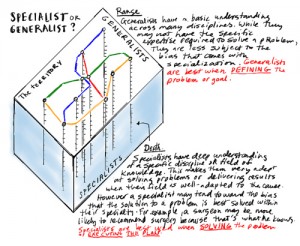 SPECIALIST OR
GENERALIST?
Range
Generalists have a basic understanding
across many disciplines. While they
may not have the specific
expertise required to solve a problem,
they are less subject to the
bias that comes with
specialization. Generalists
are best when DEFINING the
problem or goal.
GENERALISTS
THE TERRITORY
SPECIALISTS
Depth
Specialists have deep understanding
of a specific discipline or field of
knowledge. This makes them very adept
at solving problems or delivering results
when their field is well-adapted to the cause.
However a specialist may tend toward the bias
that the solution to a problem is best solved within
their specialty. For example, a surgeon may be more
likely to recommend surgery because that's what he knows.
Specialists are best used when SOLVING the problem
or EXECUTING the PLAN.